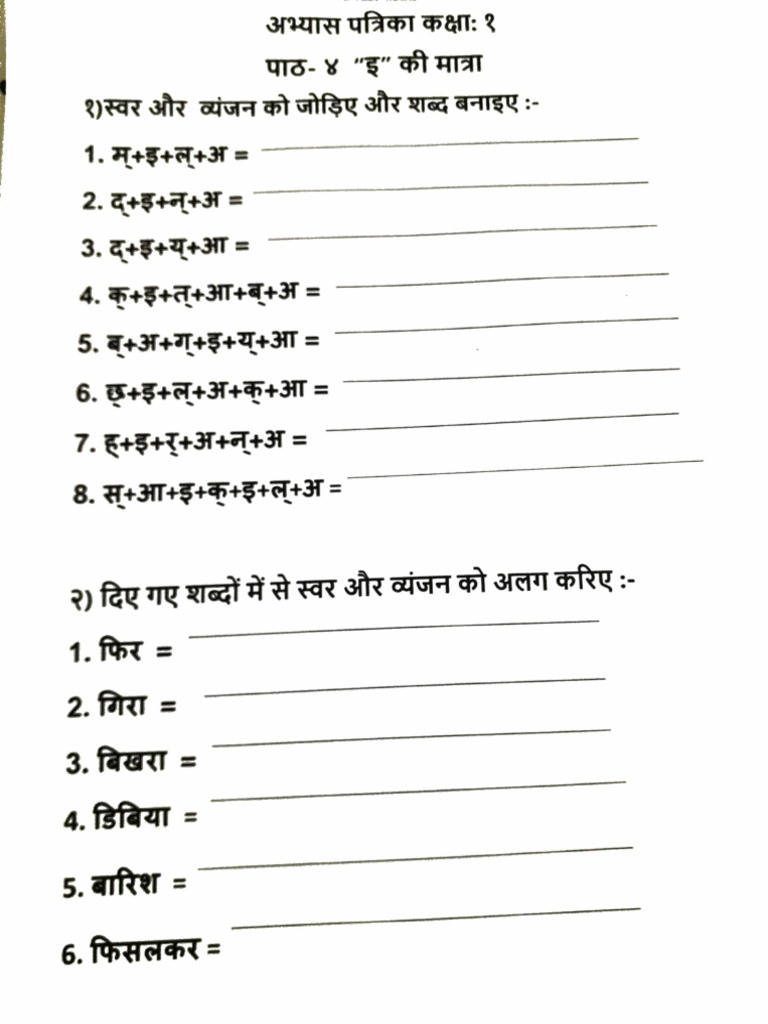 अभ्यास पत्रिका कक्षा: १
पाठ- ४ "इ" की मात्रा
१)स्वर और व्यंजन को जोड़िए और शब्द बनाइए :-
1. म्+इ+ल्+अ =
2. द्+इ+न्+अ =
3. द्+इ+य्+आ =
4. क्+इ+त्+आ+ब्+अ =
5. ब्+अ+ग्+इ+य्+आ =
6. छ्+इ+ल्+अ+क्+आ =
7. ह्+इ+र्+अ+न्+अ =
8. स्+आ+इ+क्+इ+ल्+अ =
२) दिए गए शब्दों में से स्वर और व्यंजन को अलग करिए :-
1. फिर =
2. गिरा =
3. बिखरा =
4. डिबिया =
5. बारिश =
6. फिसलकर =